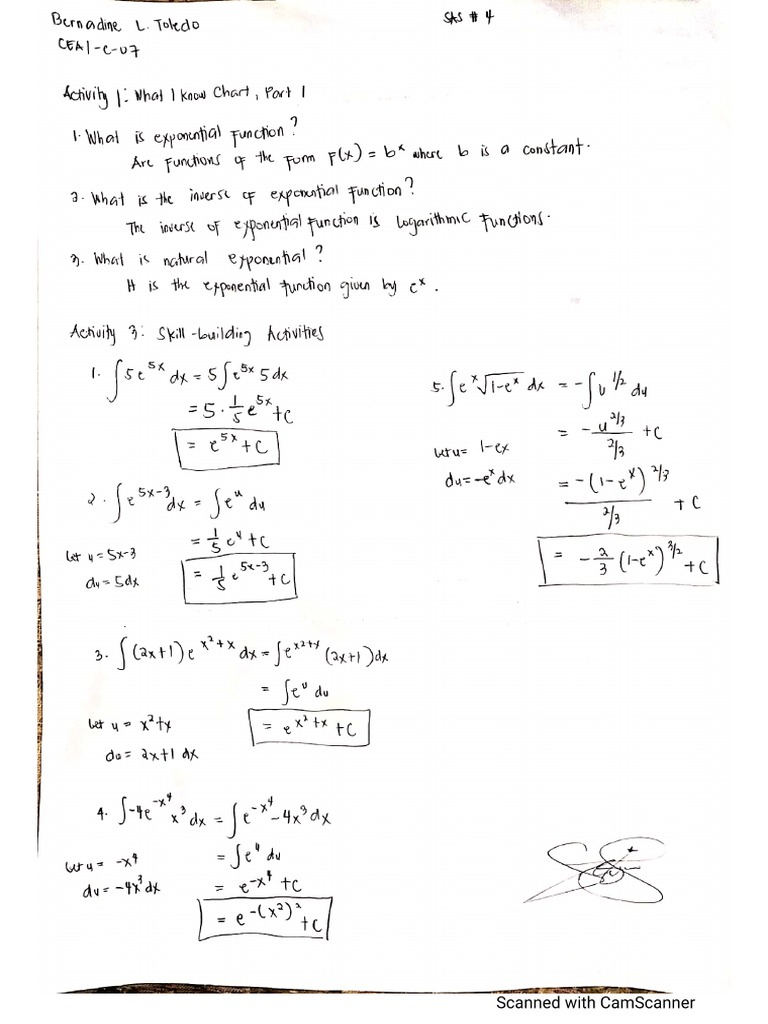 Bernadine L. Toledo
SAS # 4
CEA1-C-07
Activity 1: What I Know Chart, Part 1
1. What is exponential function?
Are functions of the form F(x) = b^x where b is a constant.
2. What is the inverse of exponential function?
The inverse of exponential function is logarithmic functions.
3. What is natural exponential?
It is the exponential function given by e^x.
Activity 3: Skill-building Activities
1. ∫5e^5x dx = 5∫e^5x 5dx
= 5 · 1/5 e^5x + C
= e^5x + C
2. ∫e^5x-3 dx = ∫e^u du
= 1/5 e^u + C
let u = 5x-3
= 1/5 e^5x-3 + C
du = 5dx
3. ∫(2x+1)e^x²+x dx = ∫e^x²+x (2x+1)dx
= ∫e^u du
let u = x²+x
= e^x²+x + C
du = 2x+1 dx
4. ∫-4e^-x⁴ x³ dx = ∫e^-x⁴ -4x³dx
let u = -x⁴
= ∫e^u du
du = -4x³dx
= e^-x⁴ + C
= e^-(x²)² + C
5. ∫e^x √1-e^x dx = -∫u^1/2 du
= -u^2/3 / 2/3 + C
let u = 1-ex
du = -e^x dx
= -(1-e^x)^2/3 / 2/3 + C
= -2/3 (1-e^x)^3/2 + C
Scanned with CamScanner